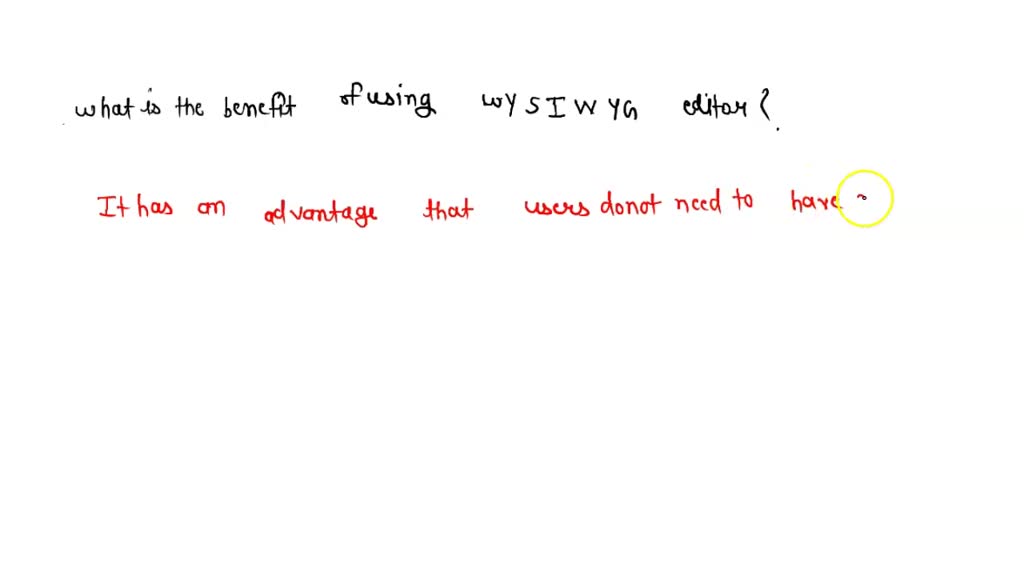 what is the benefit of using WYSIWYG editor?
It has an advantage that users donot need to have